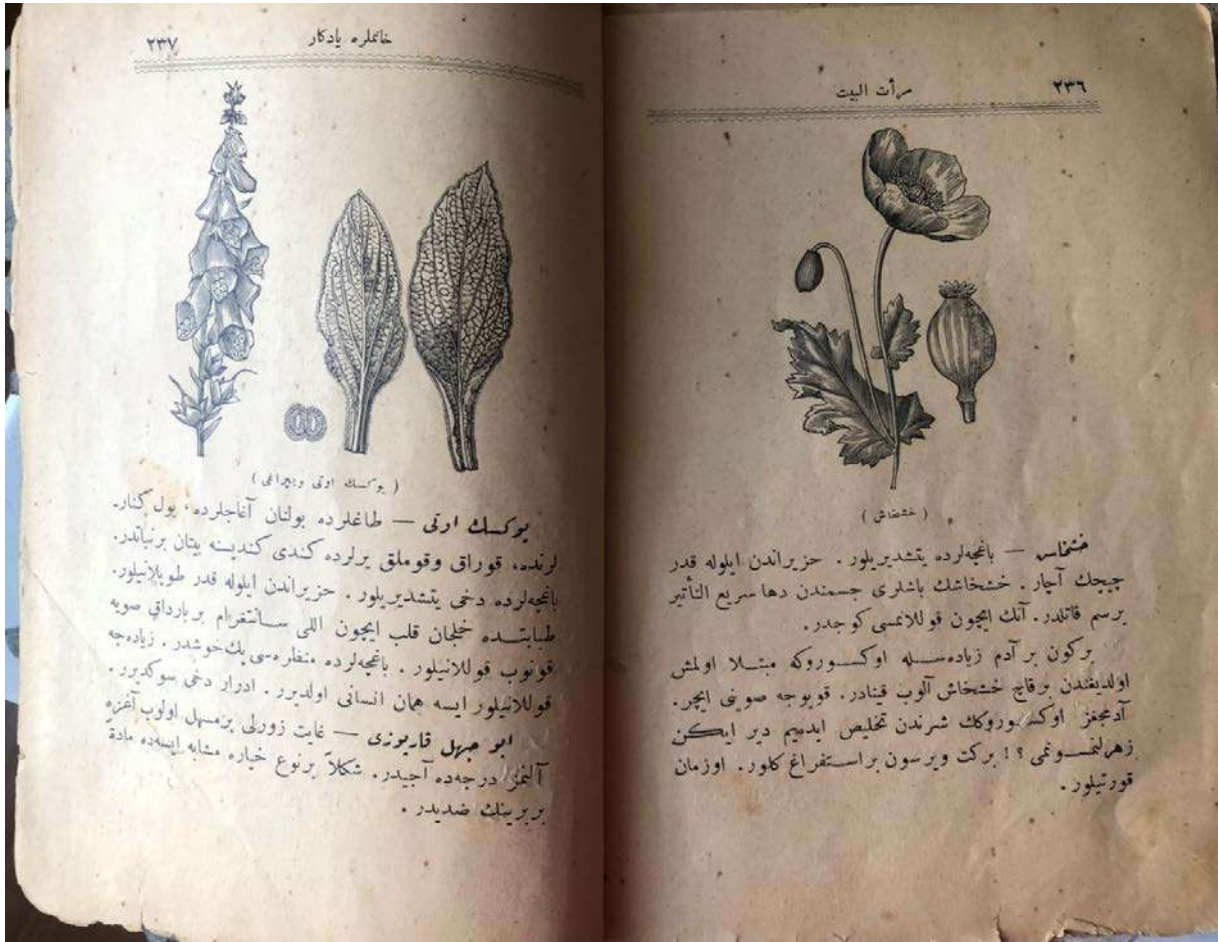 ٢٣٦
مرأت البيت
( خشخاش )
خشخاش — باغچه‌لرده يتشديريلور . حزيراندن ايلوله قدر
چيچك آچار . خشخاشك باشلرى جسمندن دها سريع التأثير
برسم قاتلدر . آنك ايچون قوللانمسى كوجدر .
بركون بر آدم زياده‌سله اوكسوروكه مبتلا اولمش
اولديغندن برقاچ خشخاش آلوب قينادر . قويوجه صوينى ايچر .
آدمجغز اوكسوروكك شرندن تخليص ايده‌يم دير ايكن
زهرلنمسونمى ؟! بركت ويرسون براستفراغ كلور . اوزمان
قورتيلور .
خانملره يادكار
٢٣٧
( يوكسك اوتى وپيراغى )
يوكسك اوتى — طاغلرده بولنان آغاجلرده ، يول كنار-
لرنده ، قوراق وقوملق يرلرده كندى كندينه بيتان برنباتدر .
باغچه‌لرده دخى يتشديريلور . حزيراندن ايلوله قدر طوپلانيلور .
طبابتده خلجان قلب ايچون اللى سانتغرام بربارداق صويه
قونوب قوللانيلور . باغچه‌لرده منظره‌سى پك خوشدر . زياده‌جه
قوللانيلور ايسه همان انسانى اولديرر . ادرار دخى سوكديرر .
ابو جهل قارپوزى — غايت زورلى برمسهل اولوب آغزه
آلنمز درجه‌ده آجيدر . شكلاً برنوع خياره مشابه ايسه‌ده مادة
بربرينك ضديدر .